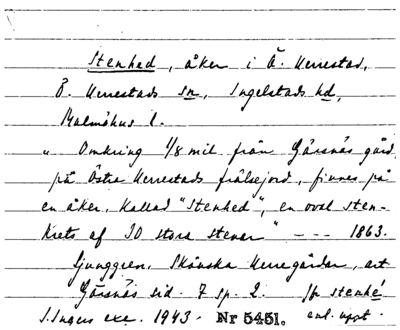 Stenhed, åker i Ö. Herrestad,
Ö. Herrestads sn, Ingelstads hd,
Malmöhus l.
" Omkring 1/8 mil från Gärsnäs gård,
på Östra Herrestads frälsejord, finnes på
en åker, kallad "Stenhed", en oval sten-
krets af 30 stora stenar" --- 1863.
Ljunggren, Skånska Herregårdar, art
Gärsnäs sid. 7 sp. 2.
S. Ingers exc. 1943. Nr 5451. enl. uppt.